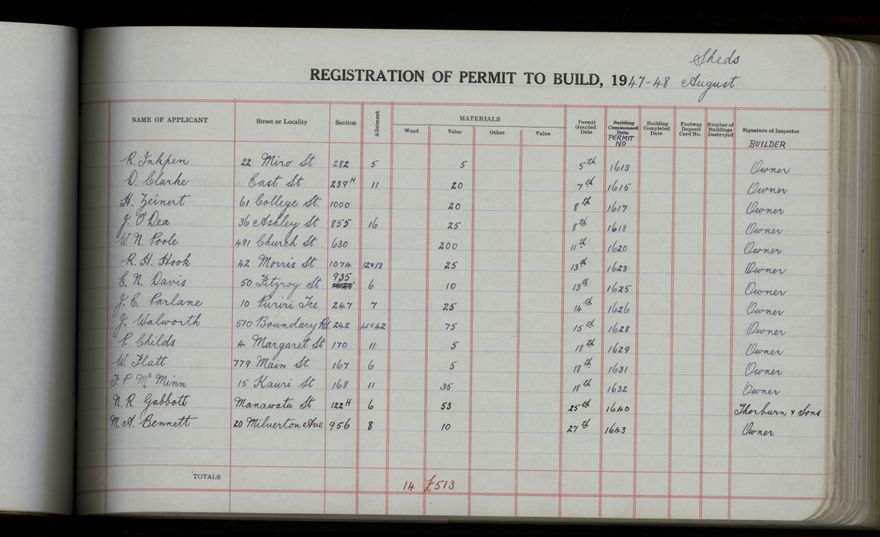 Sheds
REGISTRATION OF PERMIT TO BUILD, 1947-48 August
NAME OF APPLICANT Street or Locality Section Allotment MATERIALS Wood Value Other Value Permit Granted Date Building Commenced Date PERMIT NO Building Completed Date Footway Deposit Card No. Number of Buildings Destroyed Signature of Inspector BUILDER
R. Inkpen 22 Miro St 282 5 5 5th 1613 Owner
D. Clarke East St 239H 11 20 7th 1615 Owner
H. Zeinert 61 College St. 1000 20 8th 1617 Owner
J. O'Dea 36 Ashley St 855 16 25 8th 1618 Owner
W. N. Poole 491 Church St 630 200 11th 1620 Owner
R. H. Hook 42 Morris St 1074 12+13 25 13th 1623 Owner
E. N. Davis 50 Fitzroy St 935 6 10 13th 1625 Owner
J. C. Parlane 10 Puriri Tce 247 7 25 14th 1626 Owner
J. Walworth 510 Boundary Rd 242 41+42 75 15th 1628 Owner
P. Childs 4 Margaret St 170 11 5 18th 1629 Owner
W. Flatt 779 Main St 167 6 5 18th 1631 Owner
F. P. McMinn 15 Kauri St 168 11 35 18th 1632 Owner
N. R. Gabbott Manawatu St 122H 6 53 25th 1640 Thorburn & Sons
M. A. Bennett 20 Milverton Ave 956 8 10 27th 1643 Owner
TOTALS 14 £513